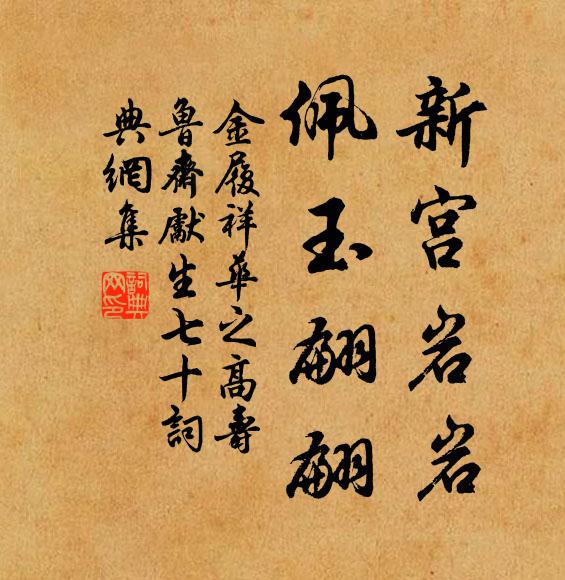 新宫岩岩
佩玉翩翩
金履祥華之高壽
魯齋獻生七十詞
典網集
詞典
网印